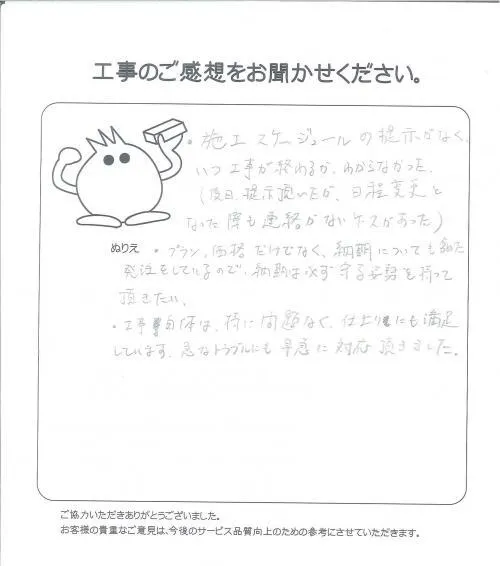 工事のご感想をお聞かせください。
・施工スケージュールの提示がなく、
いつ工事が終わるか、わからなかった。
(後日、提示頂いたが、日程変更と
なった際も連絡がないケースがあった)
ぬりえ
・プラン、価格だけでなく、納期についても含めた
発注をしているので、納期は必ず守る姿勢を持って
頂きたい。
・工事自体は、特に問題なく、仕上りにも満足
しています。急なトラブルにも早急に対応頂きました。
ご協力いただきありがとうございました。
お客様の貴重なご意見は、今後のサービス品質向上のための参考にさせていただきます。